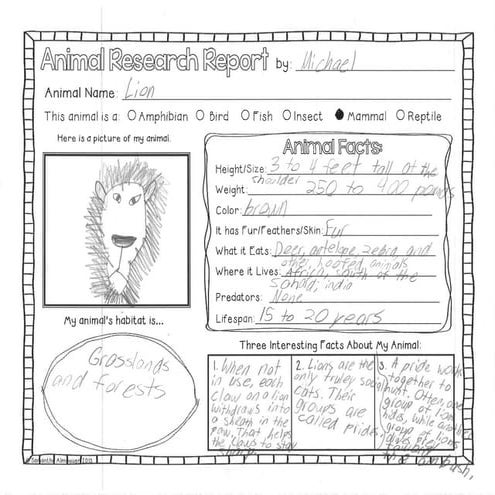 Animal Research Report by: Michael
Animal Name: Lion
This animal is a: Amphibian Bird Fish Insect Mammal Reptile
Here is a picture of my animal.
My animal's habitat is...
Grasslands
and forests
Animal Facts:
Height/Size: 3 to 4 feet tall at the
shoulder
Weight: 250 to 400 pounds
Color: brown
It has Fur/Feathers/Skin: Fur
What it Eats: Deer, antelope, zebra, and
other hoofed animals
Where it Lives: Africa, south of the
Sahara; india
Predators: None
Lifespan: 15 to 20 years
Three Interesting Facts About My Animal:
1. When not
in use, each
claw on a lion
withdraws into
a sheath in the
paw. That helps
the claws to stay
2. Lions are the
only truley social
cats. Their
groups are
called pride
3. A pride
together to
hunt. Often, one
group of lions
hids, while another
group
toward
the ambush,
© Samantha 2013